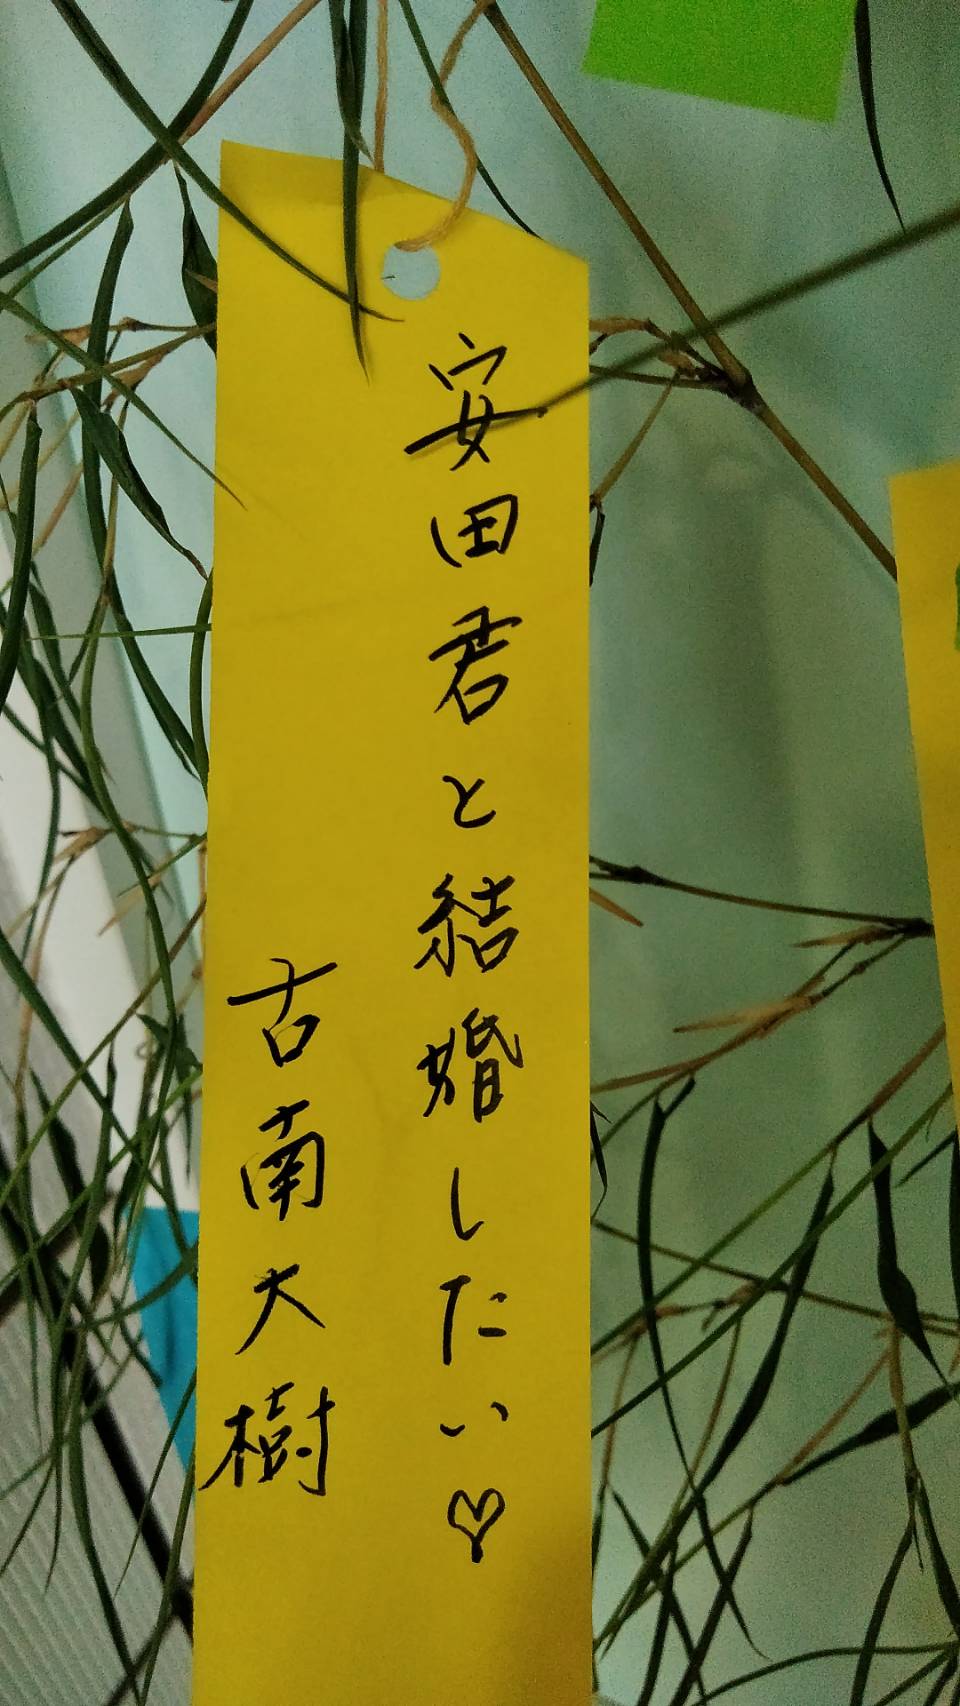 安田君と結婚したい♡
古南大樹